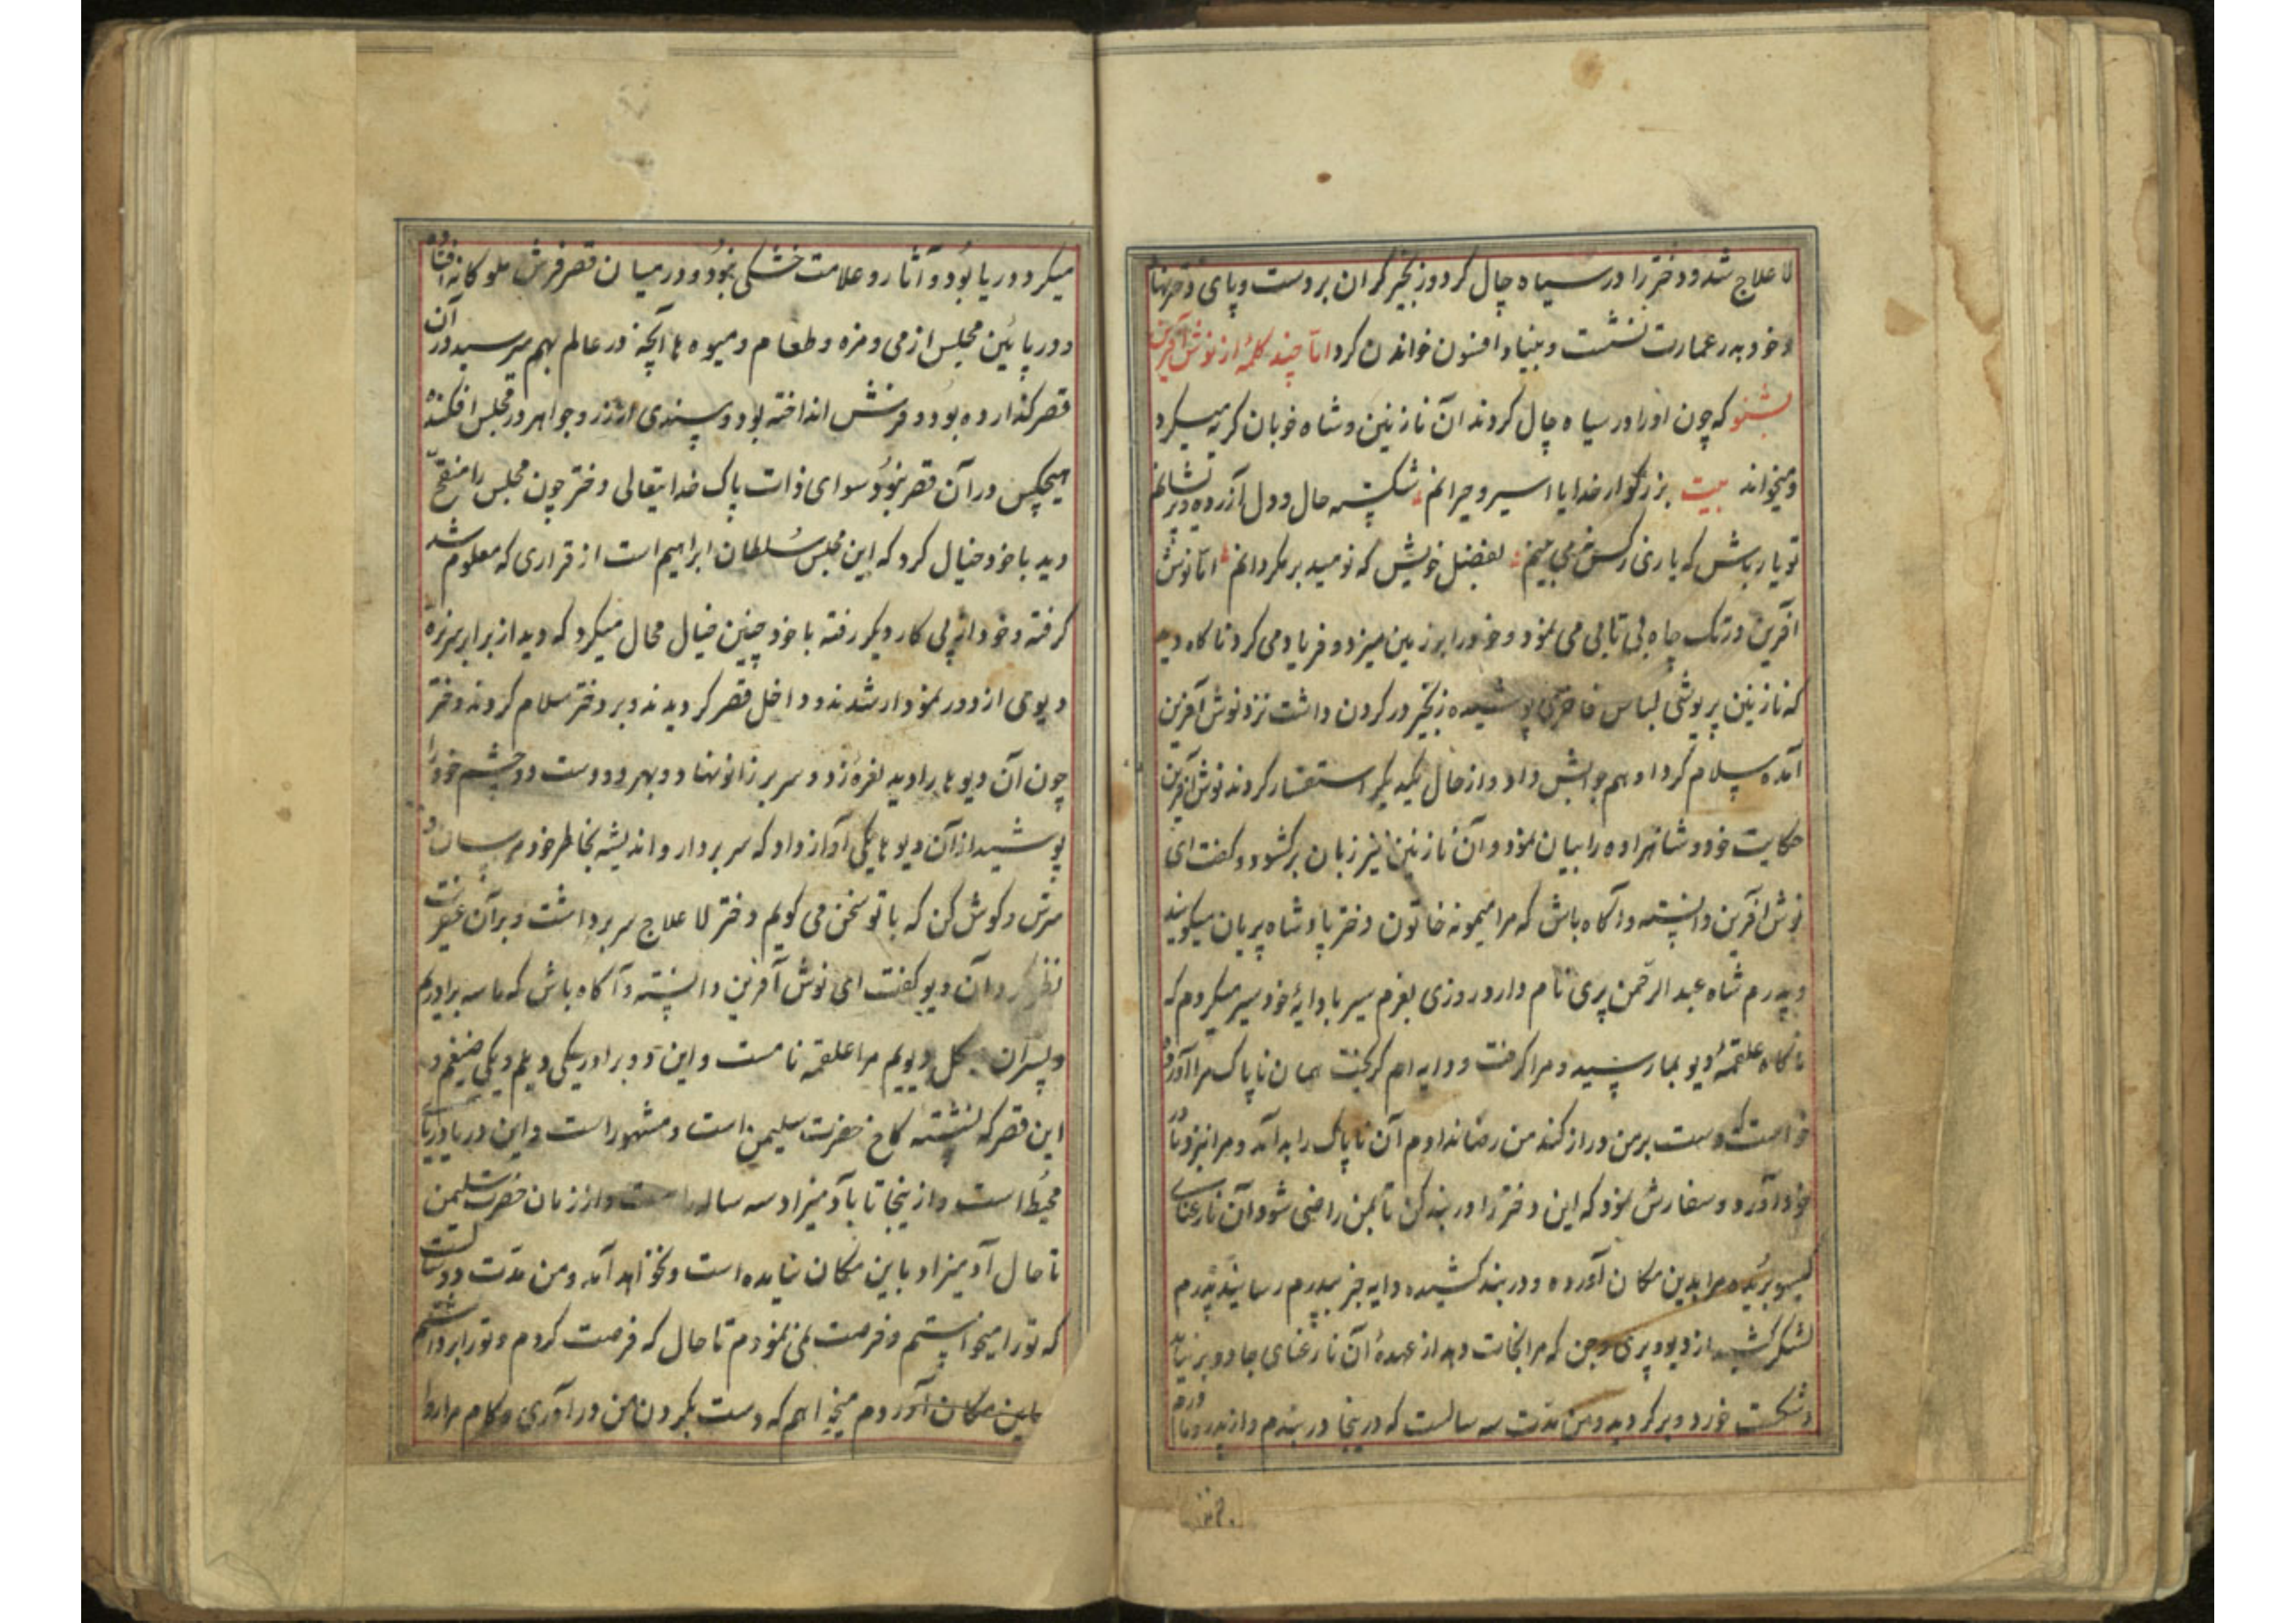 لا علاج شد و دختر را در سیاه چال کرد و زنجیر گران بر دست و پای دختر نهاد
و خود بدر عمارت نشست و بنیاد افسون خواندن کرد اما چند کلمهٔ از نوش آفرین
بشنو که چون او را در سیاه چال کردند آن نازنین و شاه خوبان گریه میکرد
و میخواند بیت بزرگوار خدایا اسیر و حیرانم شکسته حال و دل آزرده و پریشانم
تو یار باش که یاری ز کس نمی بینم بفضل خویش که نومید بر مگردانم اما نوش
آفرین در تک چاه بی تابی می نمود و خود را بر زمین میزد و فریاد می کرد ناگاه دید
که نازنین پریوشی لباس فاخری پوشیده زنجیر در گردن داشت نزد نوش آفرین
آمده سلام کرد او هم جوابش داد و از حال یکدیگر استفسار کردند نوش آفرین
حکایت خود و شاهزاده را بیان نمود و آن نازنین نیز زبان برگشود و گفت ای
نوش آفرین دانسته و آگاه باش که مرا میمونه خاتون دختر پادشاه پریان میگویند
و پدرم شاه عبد الرحمن پری نام دارد روزی بعزم سیر با دایهٔ خود سیر میکردم که
ناگاه علقمهٔ دیو بما رسید و مرا گرفت و دایه ام گریخت همان ناپاک مرا آورد و
خواست که دست بر من دراز کند من رضا ندادم آن ناپاک را بد آمد و مرا نزد مادر
خود آورد و سفارش نمود که این دختر را در بند کن تا بمن راضی شود آن نارعنای
گیسو بریده مرا بدین مکان آورده و در بند کشیده دایه خبر بپدرم رسانید پدرم
لشکر کشید از دیو و پری و جن که مرا نجات دهد از عهدهٔ آن نارعنای جادو بر نیامد
و شکست خورد و برگردید و من مدت سه سالست که در اینجا در بندم و از پدر و مادر
میکرد دریا بود و آثار و علامت خشکی نبود و در میان قصر فرش ملوکانه افتاده
و در پائین مجلس از می و مزه و طعام و میوه ها آنچه در عالم بهم میرسید در آن
قصر گذارده بود و فرش انداخته بود و سپندی از زر و جواهر در مجلس افکنده
هیچکس در آن قصر نبود سوای ذات پاک خدایتعالی دختر چون مجلس را منقح
دید با خود خیال کرد که این مجلس سلطان ابراهیم است از قراری که معلوم شد
گرفته و خود از پی کار دیگر رفته با خود چنین خیال محال میکرد که دید از برابر سه نره
دیوی از دور نمودار شدند و داخل قصر گردیدند و بر دختر سلام کردند دختر
چون آن دیوها را دید نعره زد و سر بر زانو نهاد و بهر دو دست دو چشم خود را
پوشید از آن دیوها یکی آواز داد که سر بردار و اندیشه بخاطر خود مرسان و
مترس و گوش کن که با تو سخن می گویم دختر لا علاج سر برداشت و بر آن عفریت
نظر کرد آن دیو گفت ای نوش آفرین دانسته و آگاه باش که ما سه برادریم
و پسران دیویم مرا علقمه نامست و این دو برادر یکی دیلم و یکی ضیغم و
این قصر که نشسته کاخ حضرت سلیمن است و مشهور است و این دریا دریای
محیط است و از اینجا تا بآدمیزاد سه ساله راهست و از زمان حضرت سلیمن
تا حال آدمیزاد باین مکان نیامده است و نخواهد آمد و من مدت دو سالست
که تو را میخواستم و فرصت نمی نمودم تا حال که فرصت کردم و تو را برداشتم
باین مکان آوردم میخواهم که دست بگردن من در آوری و کام مرا روا